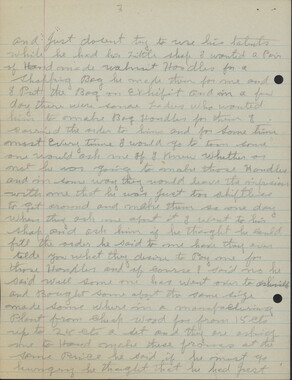 3
and just doesent try to use his talents
while he had his little shop I wanted a Pair
of Hand made walnut Handles for a
Shopping Bag he made them for me and
I Put the Bag on Exhibit and in a few
day there were some Ladies who wanted
him to make Bag Handles for them I
carried the order to him and for some time
most Every time I would go to town some
one would ask me if I knew whether or
not he was going to make those Handles
and in some way they would leave the impression
with me that he was just too shiftless
to get around and make them so one day
when they ask me about it I went to his
shop and ask him if he thought he could
fill the order he said to me have they ever
told you what they desire to Pay one for
those Handles and of course I said no he
said well some one has went over to
and Bought some about the same size
made some where in a manufacturing
Plant from cheap wood for from 15 cts
up to 25 cts a set and they are asking
me to Hand make these Handles at the
same Price he said if he must go
hungry he thought that he had just